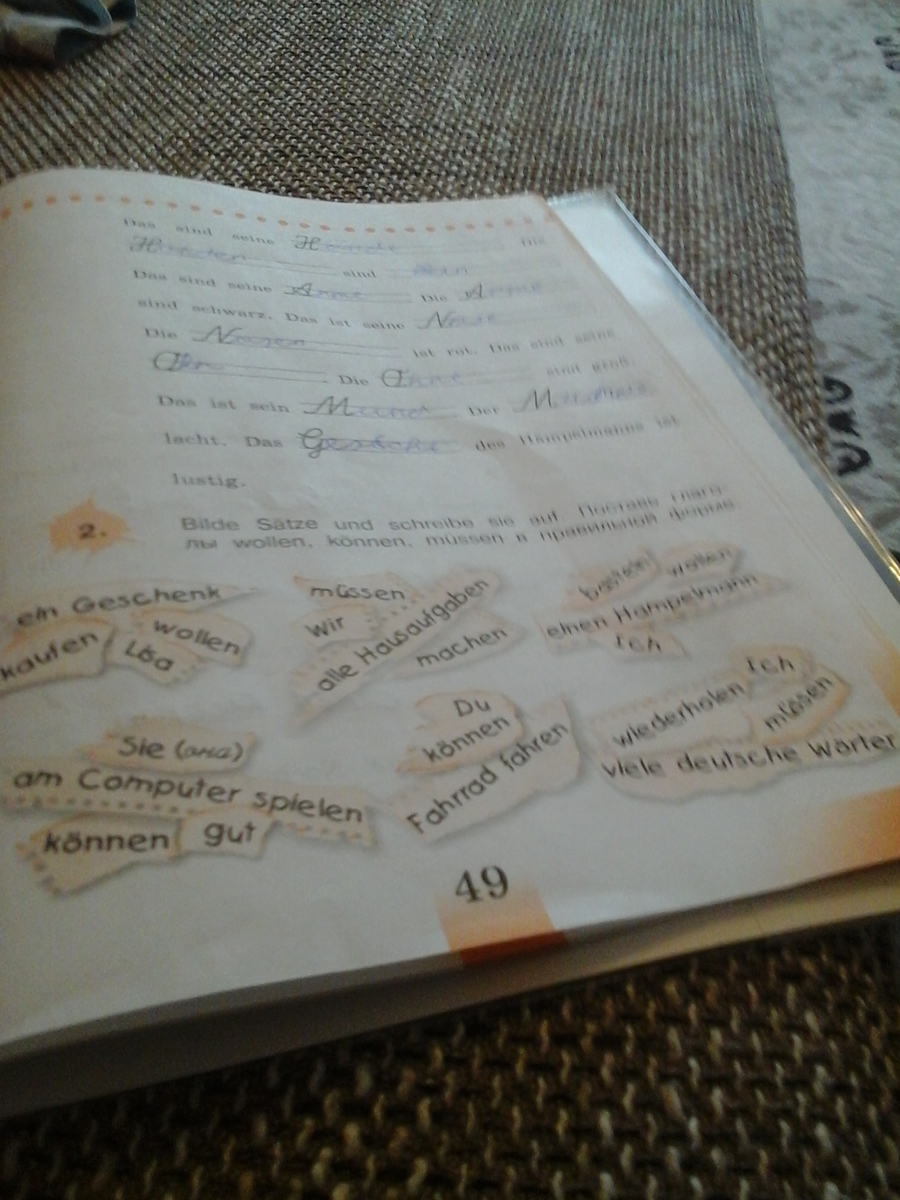 Das sind seine Die
sind
Das sind seine Arme Die Arme
sind schwarz. Das ist seine Nase
Die Nasen ist rot. Das sind seine
Die sind groß.
Das ist sein Mund Der
lacht. Das des Hampelmanns ist
lustig.
2. Bilde Sätze und schreibe sie auf. Поставь глаго-
лы wollen, können, müssen в правильной форме.
ein Geschenk
kaufen
Lisa
wollen
müssen
wir
alle Hausaufgaben
machen
basteln
wollen
einen Hampelmann
Ich
Sie (она)
am Computer spielen
können
gut
Du
können
Fahrrad fahren
Ich
wiederholen
müssen
viele deutsche Wörter
49